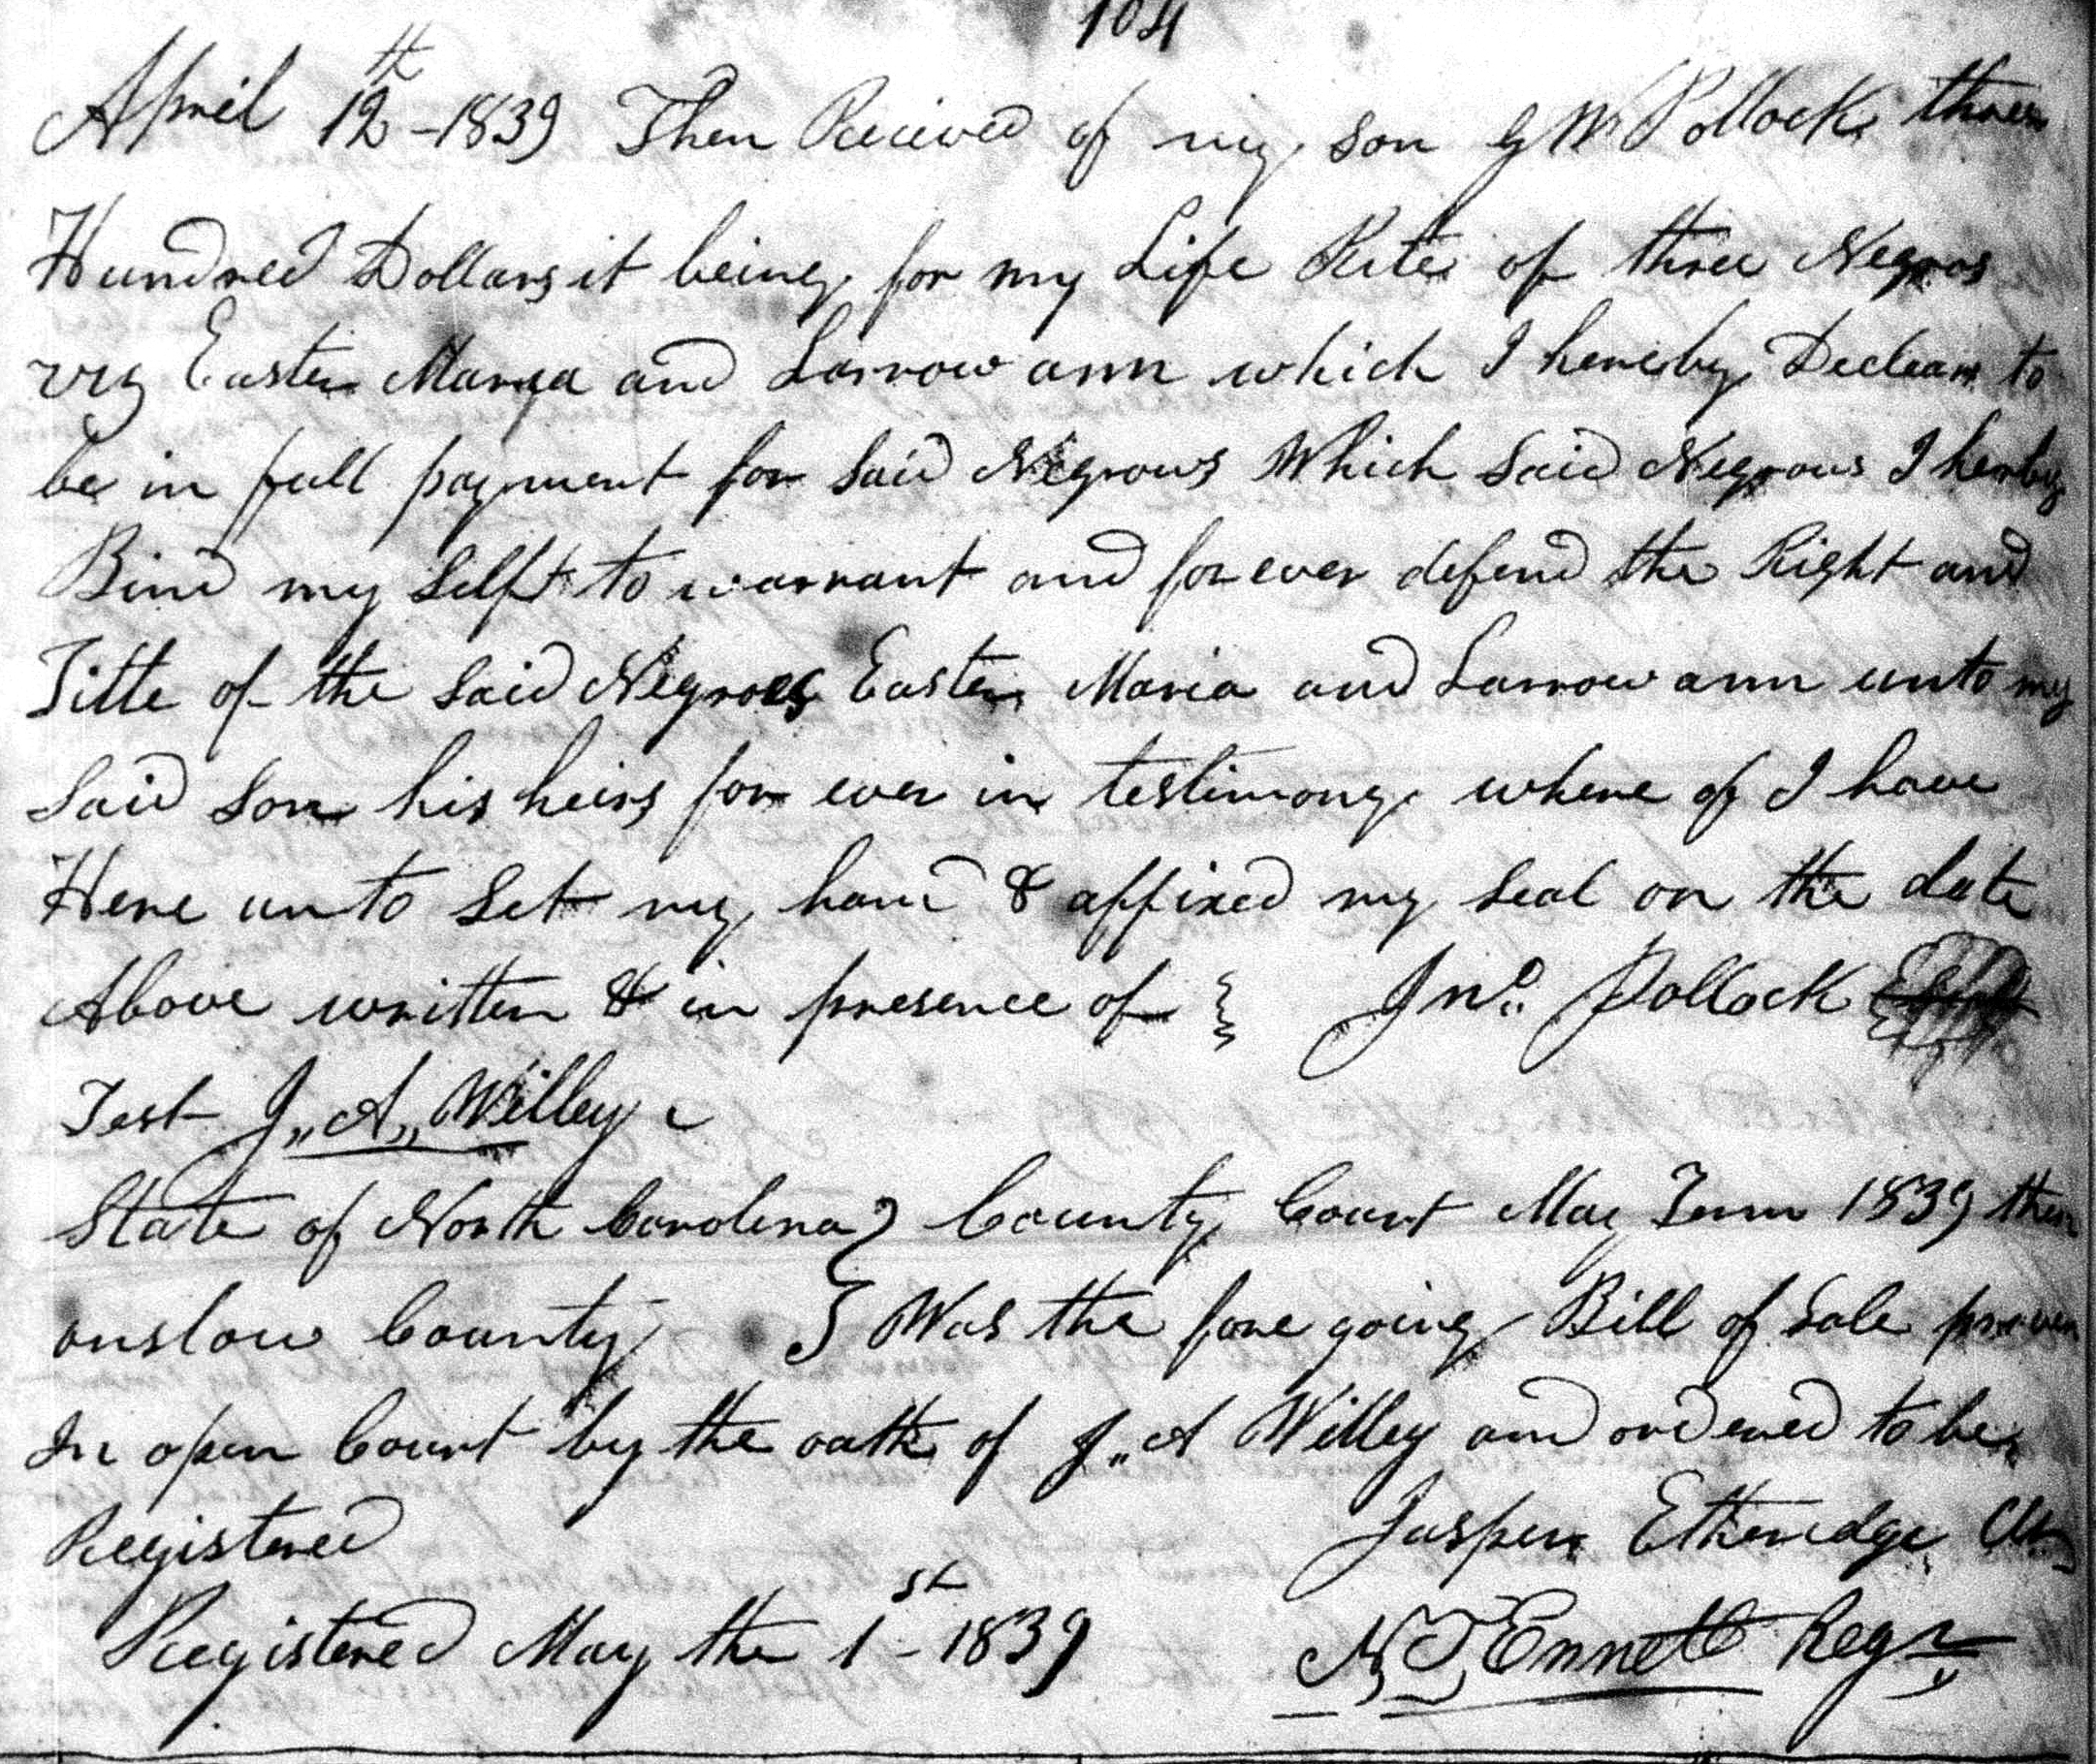 104
April 12th - 1839 Then Received of my son G W Pollock three
Hundred Dollars it being for my Life Rite of three Negros
viz Easter Marya and Larrow ann which I hereby Declear to
be in full payment for Said Negrows Which Said Negrows I hereby
Bind my Selft to warrant and for ever defend the Right and
Title of the Said Negroes Easter Maria and Larrow ann unto my
Said Son his heirs for ever in testimony where of I have
Here unto Set my hand & affixed my Seal on the date
Above written & in presence of } Jno. Pollock
Test J,, A,, Willey
State of North Carolina } County Court May Term 1839 then
onslow County } Was the fore going Bill of Sale proven
In open Court by the oath of J,, A Willey and ordered to be
Registered Jasper Etheridge Clk
Registered May the 1st - 1839 N T Ennett Regr